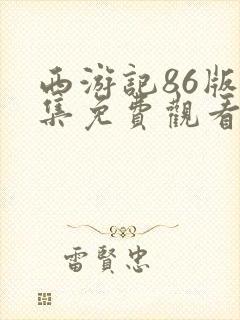 西游記86版
集免費觀看
雷賢忠